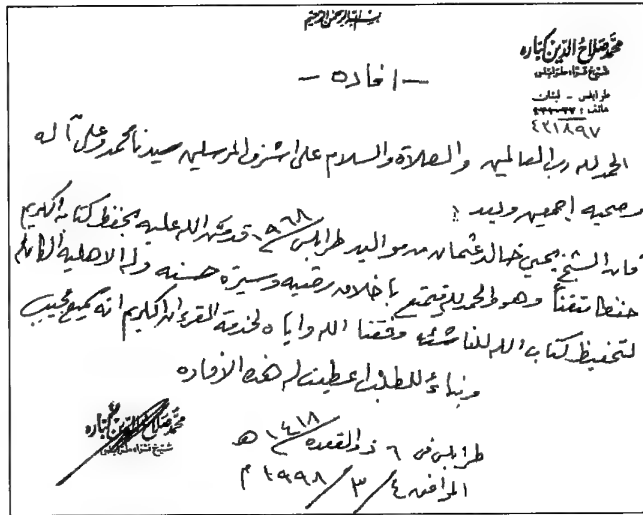 بسم الله الرحمن الرحيم
محمد صلاح الدين كباره
شيخ قراء طرابلس
طرابلس - لبنان
هاتف :
٤٣١٨٩٧
- افاده -
الحمد لله رب العالمين والصلاة والسلام على اشرف المرسلين سيدنا محمد وعلى آله
وصحبه اجمعين وبعد :
فان الشيخ يحيى خالد عثمان من مواليد طرابلس / ١٩٦٨ قد منّ الله عليه بحفظ كتابه الكريم
حفظا متقنا وهو الحمد لله يتمتع باخلاق رضيه وسيرة حسنه وله الاهلية الكامله
لتحفيظ كتاب الله للناشئة وفقنا الله واياه لخدمة القرءان الكريم انه سميع مجيب
وبناءً للطلب اعطيت له هذه الافاده
محمد صلاح الدين كباره
شيخ قراء طرابلس
طرابلس في ٦ ذو القعده / ١٤١٨ هـ
الموافق ٤ / ٣ / ١٩٩٨ م